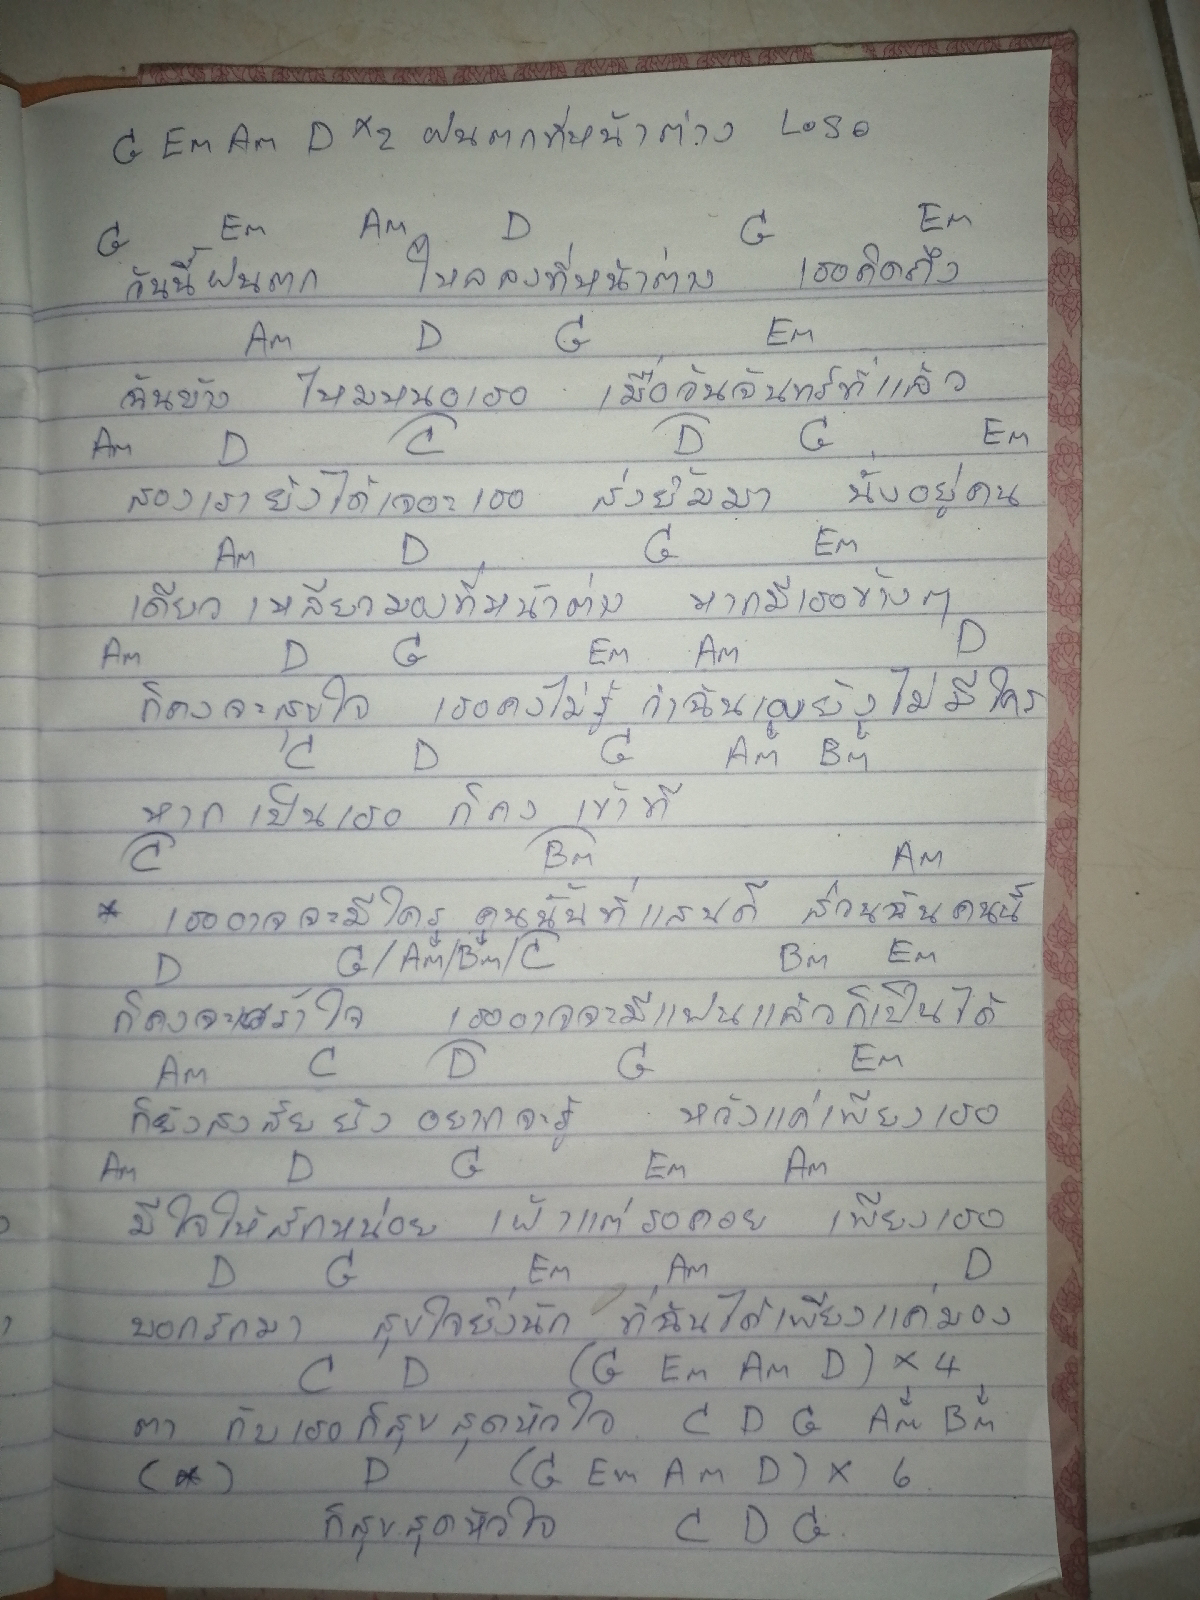 G Em Am D x2 ฝนตกที่หน้าต่าง LOSO
G Em Am D G Em
วันนี้ฝนตก ไหลลงที่หน้าต่าง เธอคิดถึง
Am D G Em
ฉันบ้าง ไหมหนอเธอ เมื่อวันจันทร์ที่แล้ว
Am D C D G Em
สองเรายังได้เจอะเธอ ส่งยิ้มมา นั่งอยู่คน
Am D G Em
เดียว เหลียวมองที่หน้าต่าง หากมีเธอข้างๆ
Am D G Em Am D
ก็คงจะสุขใจ เธอคงไม่รู้ ว่าฉันเองยังไม่มีใคร
C D G Am Bm
หากเป็นเธอ ก็คง เข้าที
C Bm Am
* เธออาจจะมีใครคนนั้นที่แสนดี ส่วนฉันคนนี้
D G/Am/Bm/C Bm Em
ก็คงจะเศร้าใจ เธออาจจะมีแฟนแล้วก็เป็นได้
Am C D G Em
ก็ยังสงสัยยัง อยากจะรู้ หวังแค่เพียงเธอ
Am D G Em Am
มีใจให้สักหน่อย เฝ้าแต่รอคอย เพียงเธอ
D G Em Am D
บอกรักมา สุขใจยิ่งนัก ที่ฉันได้เพียงแค่มอง
C D (G Em Am D) x 4
ตา กับเธอก็สุขสุดหัวใจ C D G Am Bm
(*) D (G Em Am D) x 6
ก็สุขสุดหัวใจ C D G